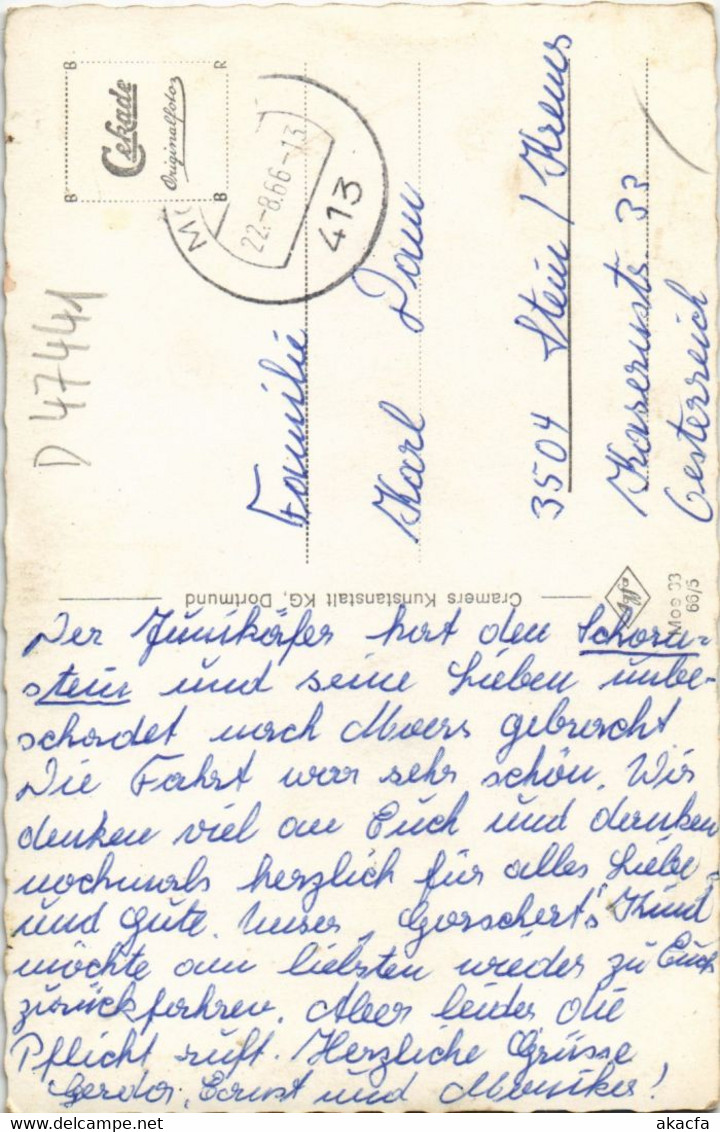 Cekade
Originalfoto
B R
B B
22.-8.66-13
413
D 47441
Familie
Karl Dam
3504 Stein / Krems
Kaserustr. 33
Oesterreich
Cramers Kunstanstalt KG, Dortmund
Agfa
Moe 33
66/5
Der Junikäfer hat den Schorn-
stein und seine Lieben unbe-
schadet nach Moers gebracht
Die Fahrt war sehr schön. Wir
denken viel an Euch und danken
nochmals herzlich für alles Liebe
und Gute. Unser „Gorschert's" Kind
möchte am liebsten wieder zu Euch
zurückfahren. Aber leider die
Pflicht ruft. Herzliche Grüsse
Gerda, Ernst und Monika!
akacfa